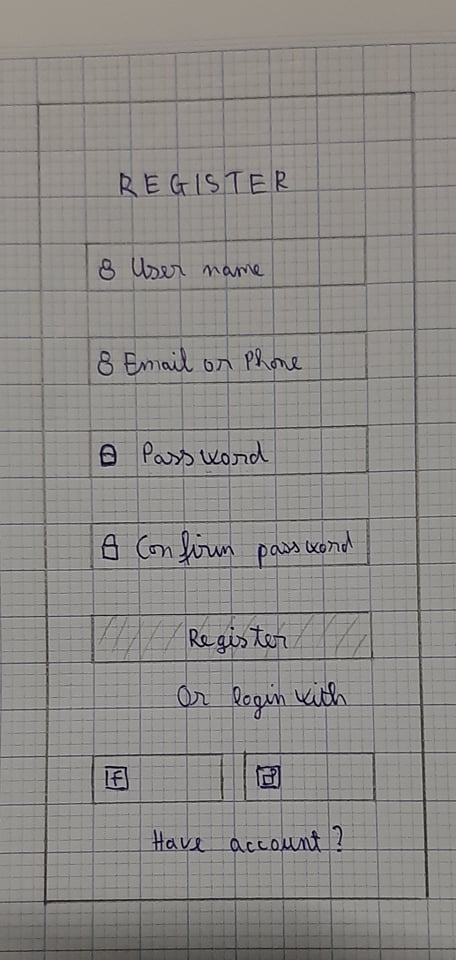 REGISTER
User name
Email or Phone
Password
Confirm password
Register
Or login with
f
Have account?